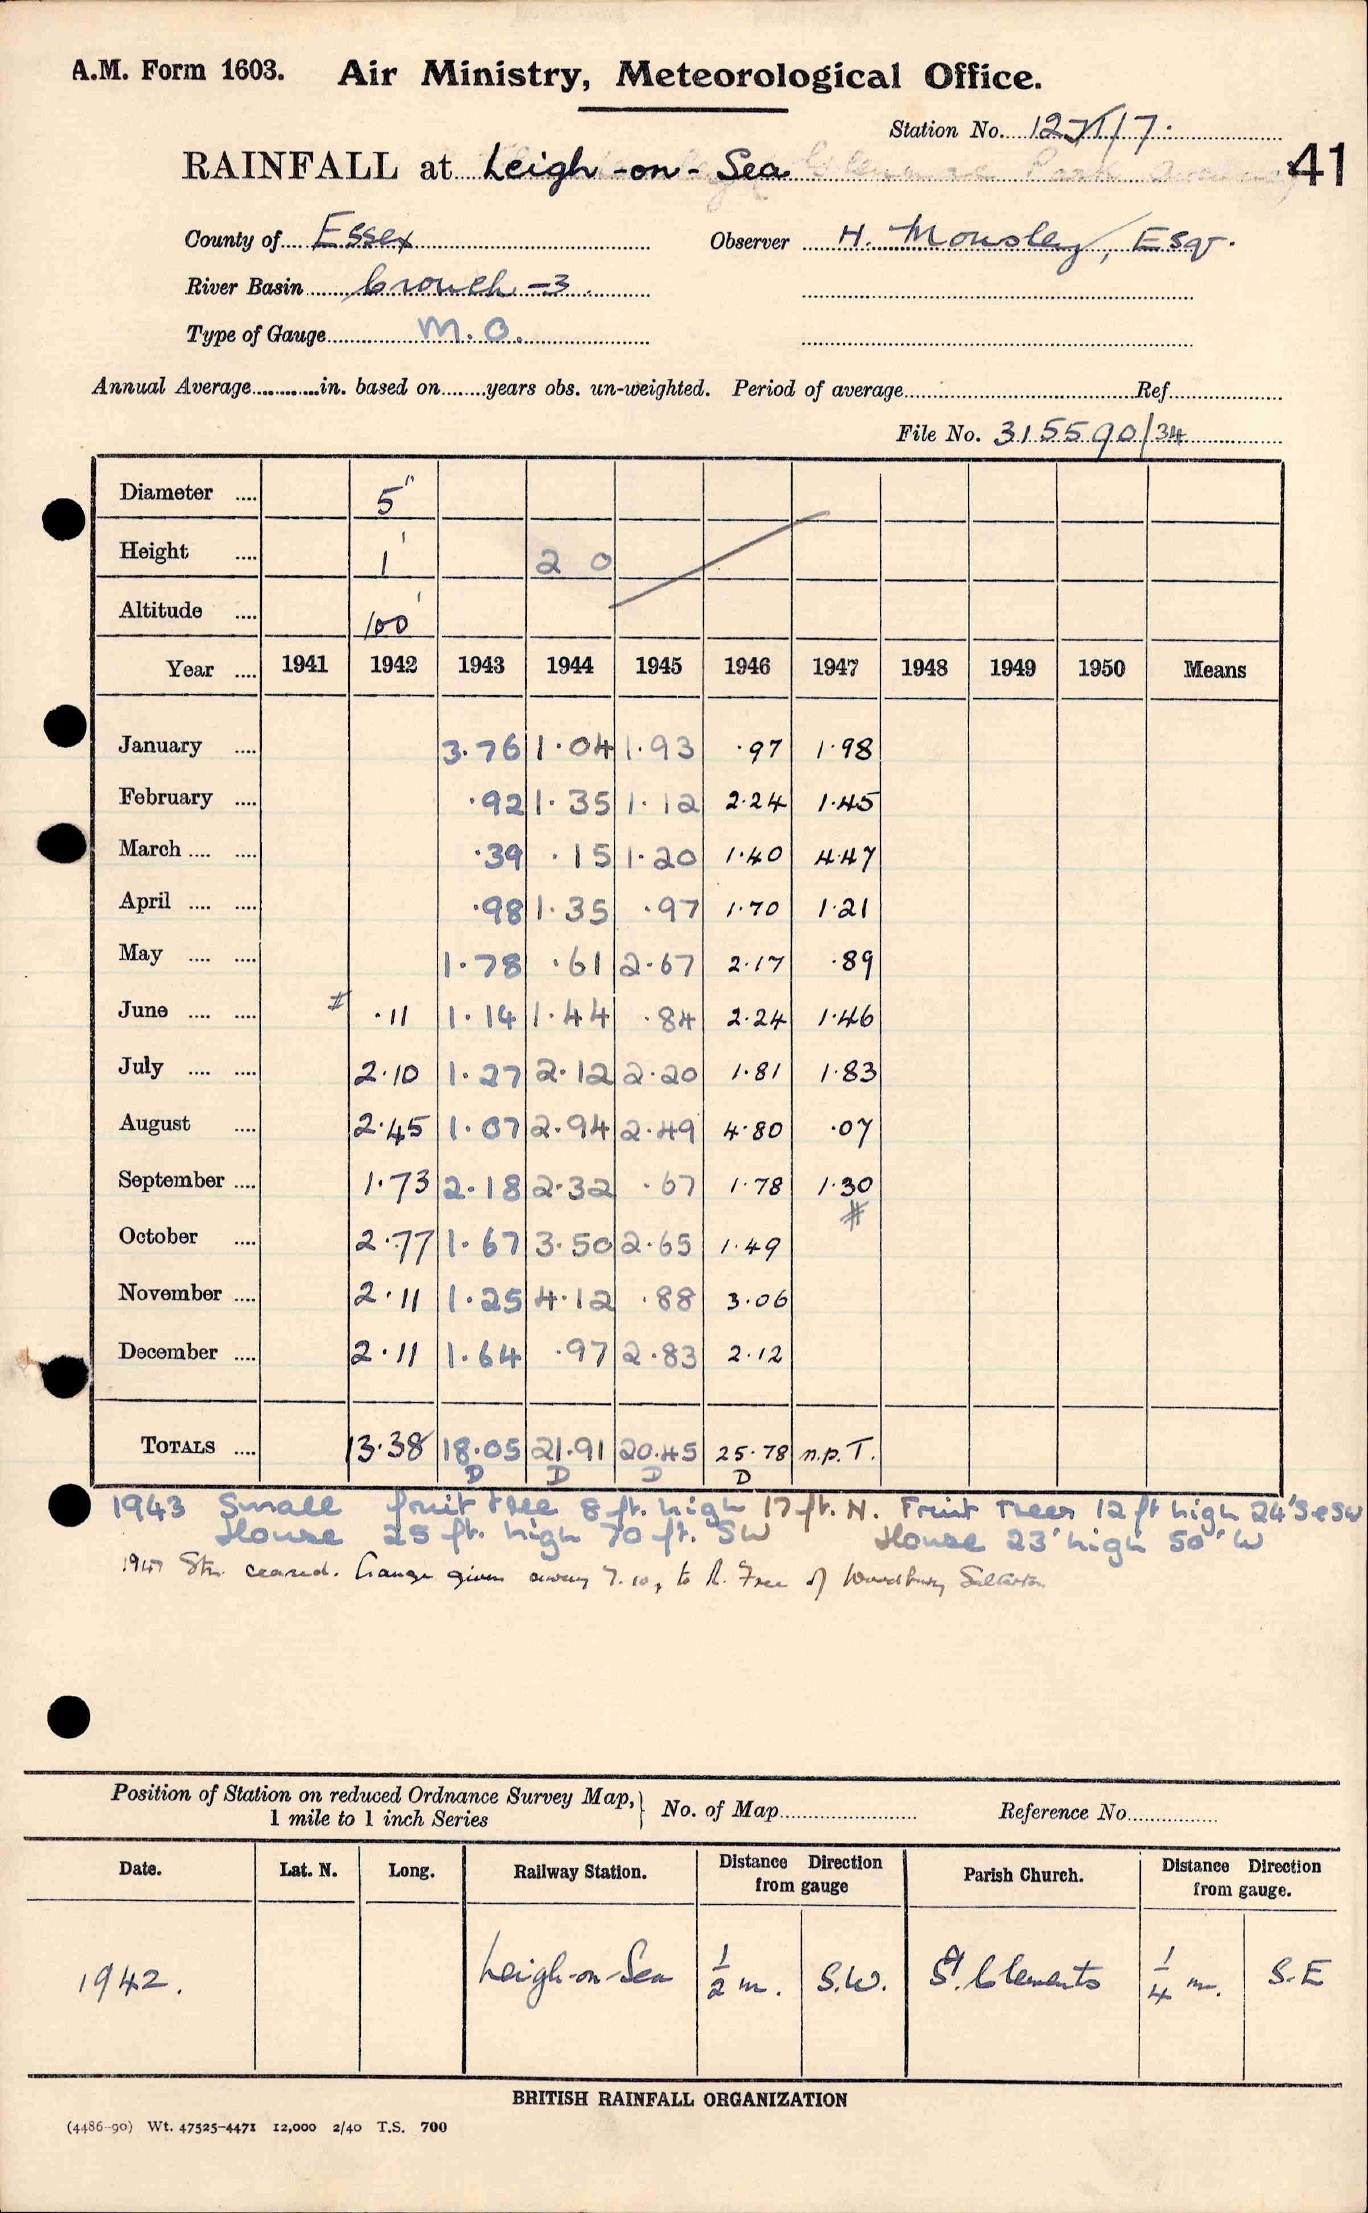 A.M. Form 1603. Air Ministry, Meteorological Office.
Station No. 12 /7.
RAINFALL at Leigh-on-Sea 41
County of Essex Observer H. Mousley, Esqr.
River Basin Crouch -3.
Type of Gauge M.O.
Annual Average in. based on years obs. un-weighted. Period of average Ref
File No. 315590/34
Diameter 5"
Height 1' 2 0
Altitude 100'
Year 1941 1942 1943 1944 1945 1946 1947 1948 1949 1950 Means
January 3.76 1.04 1.93 .97 1.98
February .92 1.35 1.12 2.24 1.45
March .39 .15 1.20 1.40 4.47
April .98 1.35 .97 1.70 1.21
May 1.78 .61 2.67 2.17 .89
June # .11 1.14 1.44 .84 2.24 1.46
July 2.10 1.27 2.12 2.20 1.81 1.83
August 2.45 1.07 2.94 2.49 4.80 .07
September 1.73 2.18 2.32 .67 1.78 1.30
#
October 2.77 1.67 3.50 2.65 1.49
November 2.11 1.25 4.12 .88 3.06
December 2.11 1.64 .97 2.83 2.12
TOTALS 13.38 18.05 21.91 20.45 25.78 n.p.T.
D D D D
1943 Small fruit tree 8 ft. high 17 ft. N. Fruit Trees 12 ft high 24' S & SW
House 25 ft. high 70 ft. SW House 23' high 50' W
1947 Stn. ceased. Gauge given away 7.10, to R. Free of Woodbury Salterton
Position of Station on reduced Ordnance Survey Map, 1 mile to 1 inch Series } No. of Map Reference No.
Date. Lat. N. Long. Railway Station. Distance Direction from gauge Parish Church. Distance Direction from gauge.
1942. Leigh-on-Sea 1/2 m. S.W. St. Clements 1/4 m. S.E
BRITISH RAINFALL ORGANIZATION
(4486-90) Wt. 47525-4471 12,000 2/40 T.S. 700